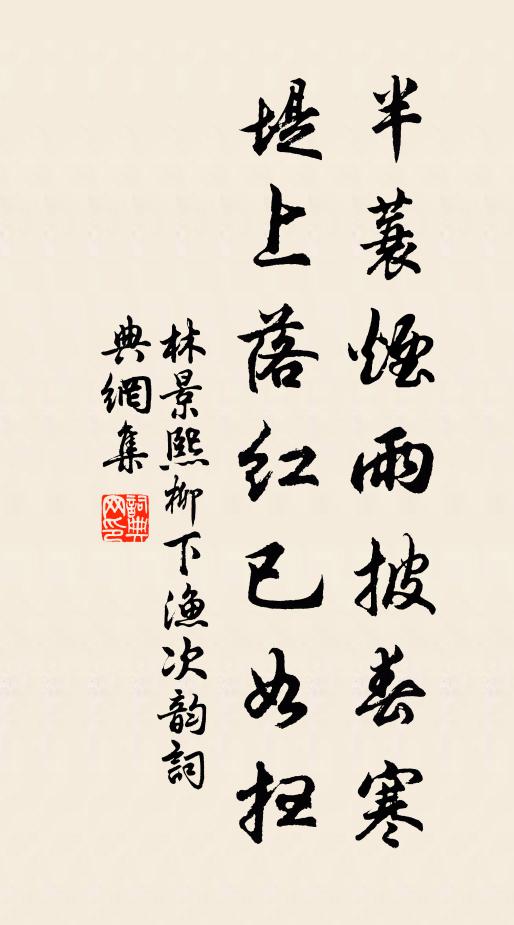 半蓑煙雨披春寒
堤上落紅已如
林景熙柳下漁次韵詞
典網集
詞典
网印